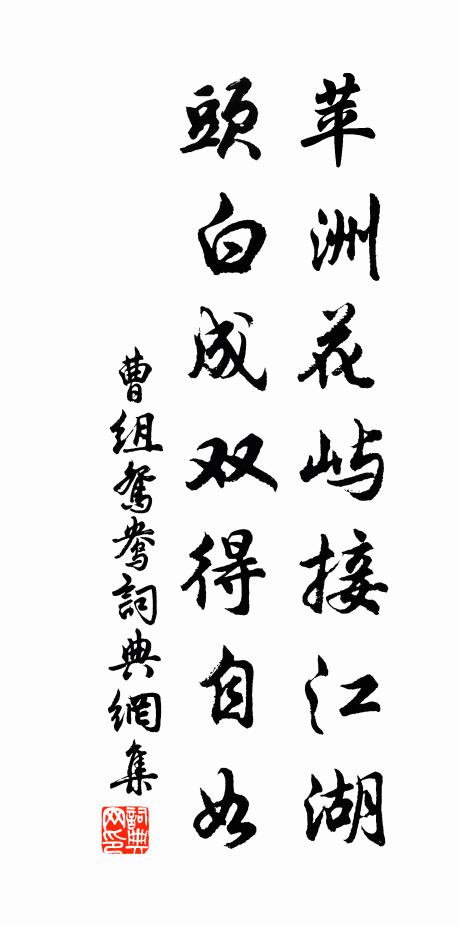 苹洲花屿接江湖
頭白成双得自如
曹组鸳鸯詞典網集
詞典网印